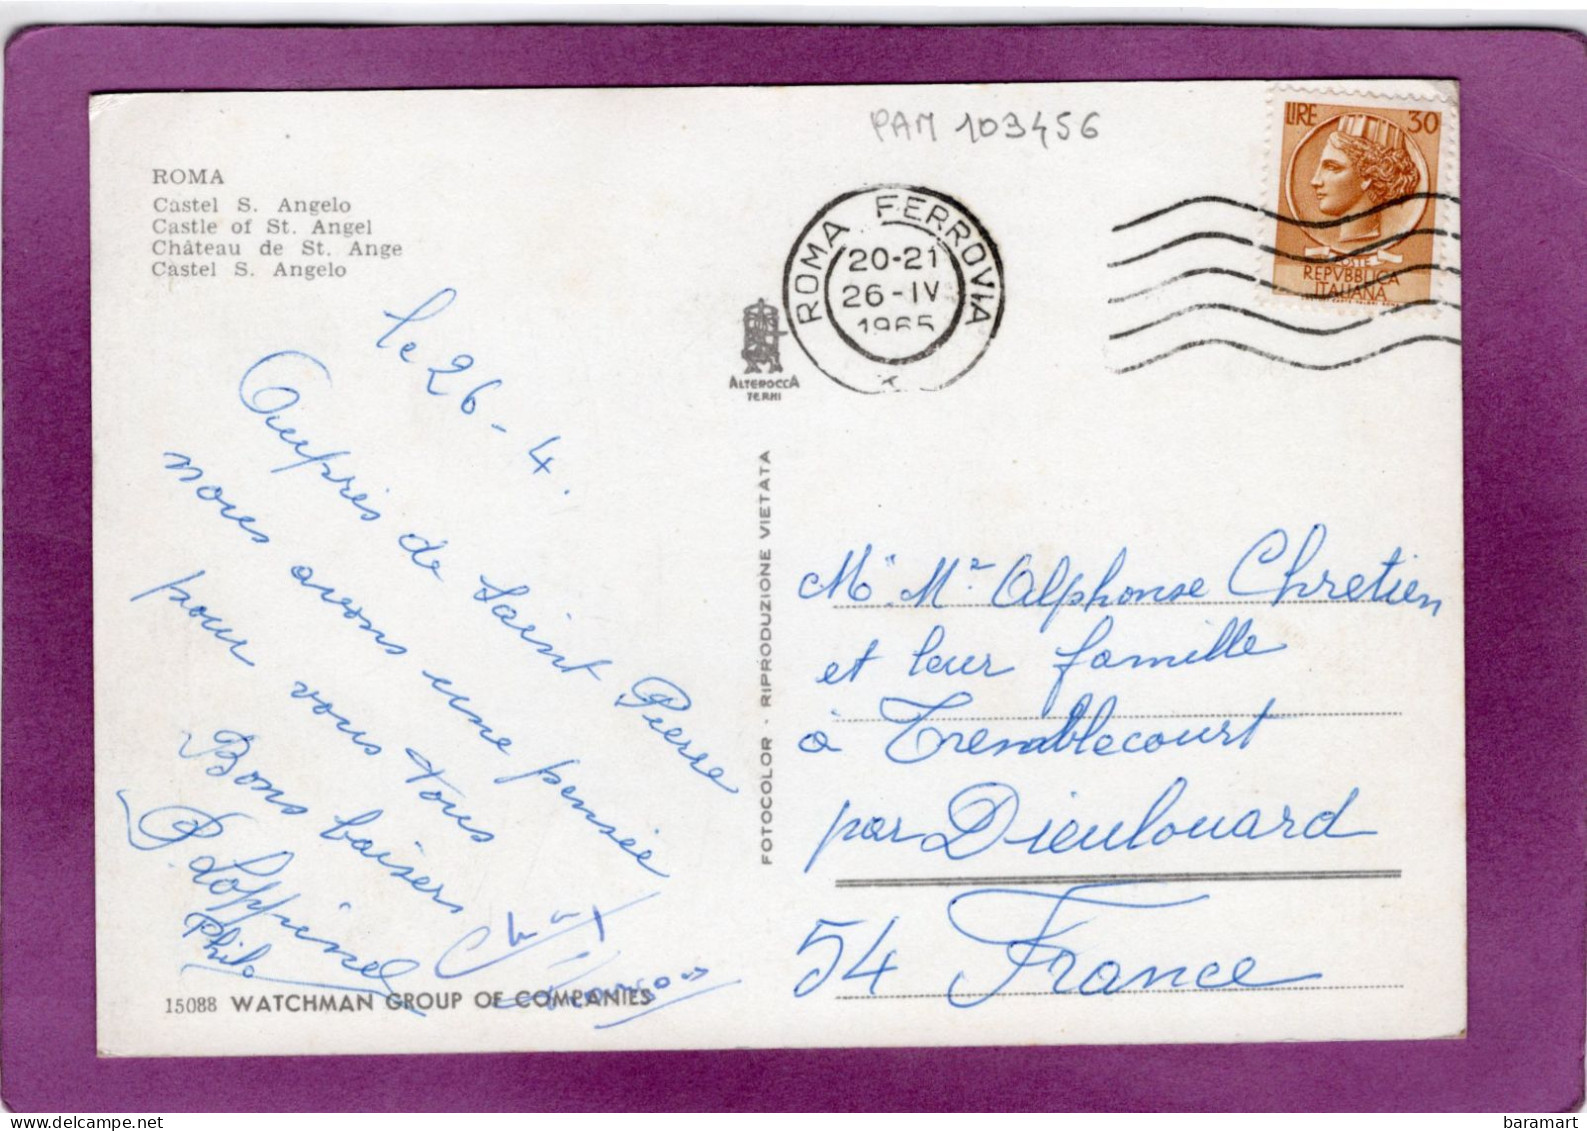 PAM 103456
ROMA
Castel S. Angelo
Castle of St. Angel
Château de St. Ange
Castel S. Angelo
ROMA FERROVIA
20-21
26-IV
1965
LIRE 30
POSTE
REPVBBLICA
ITALIANA
ALTEROCCA
TERNI
le 26-4.
Auprès de Saint Pierre
nous avons une pensée
pour vous tous
Bons baisers
P. Loppinel
Phila
FOTOCOLOR · RIPRODUZIONE VIETATA
Me. Mr Alphonse Chretien
et leur famille
à Tremblecourt
par Dieulouard
54 France
15088 WATCHMAN GROUP OF COMPANIES
baramart
delcampe.net